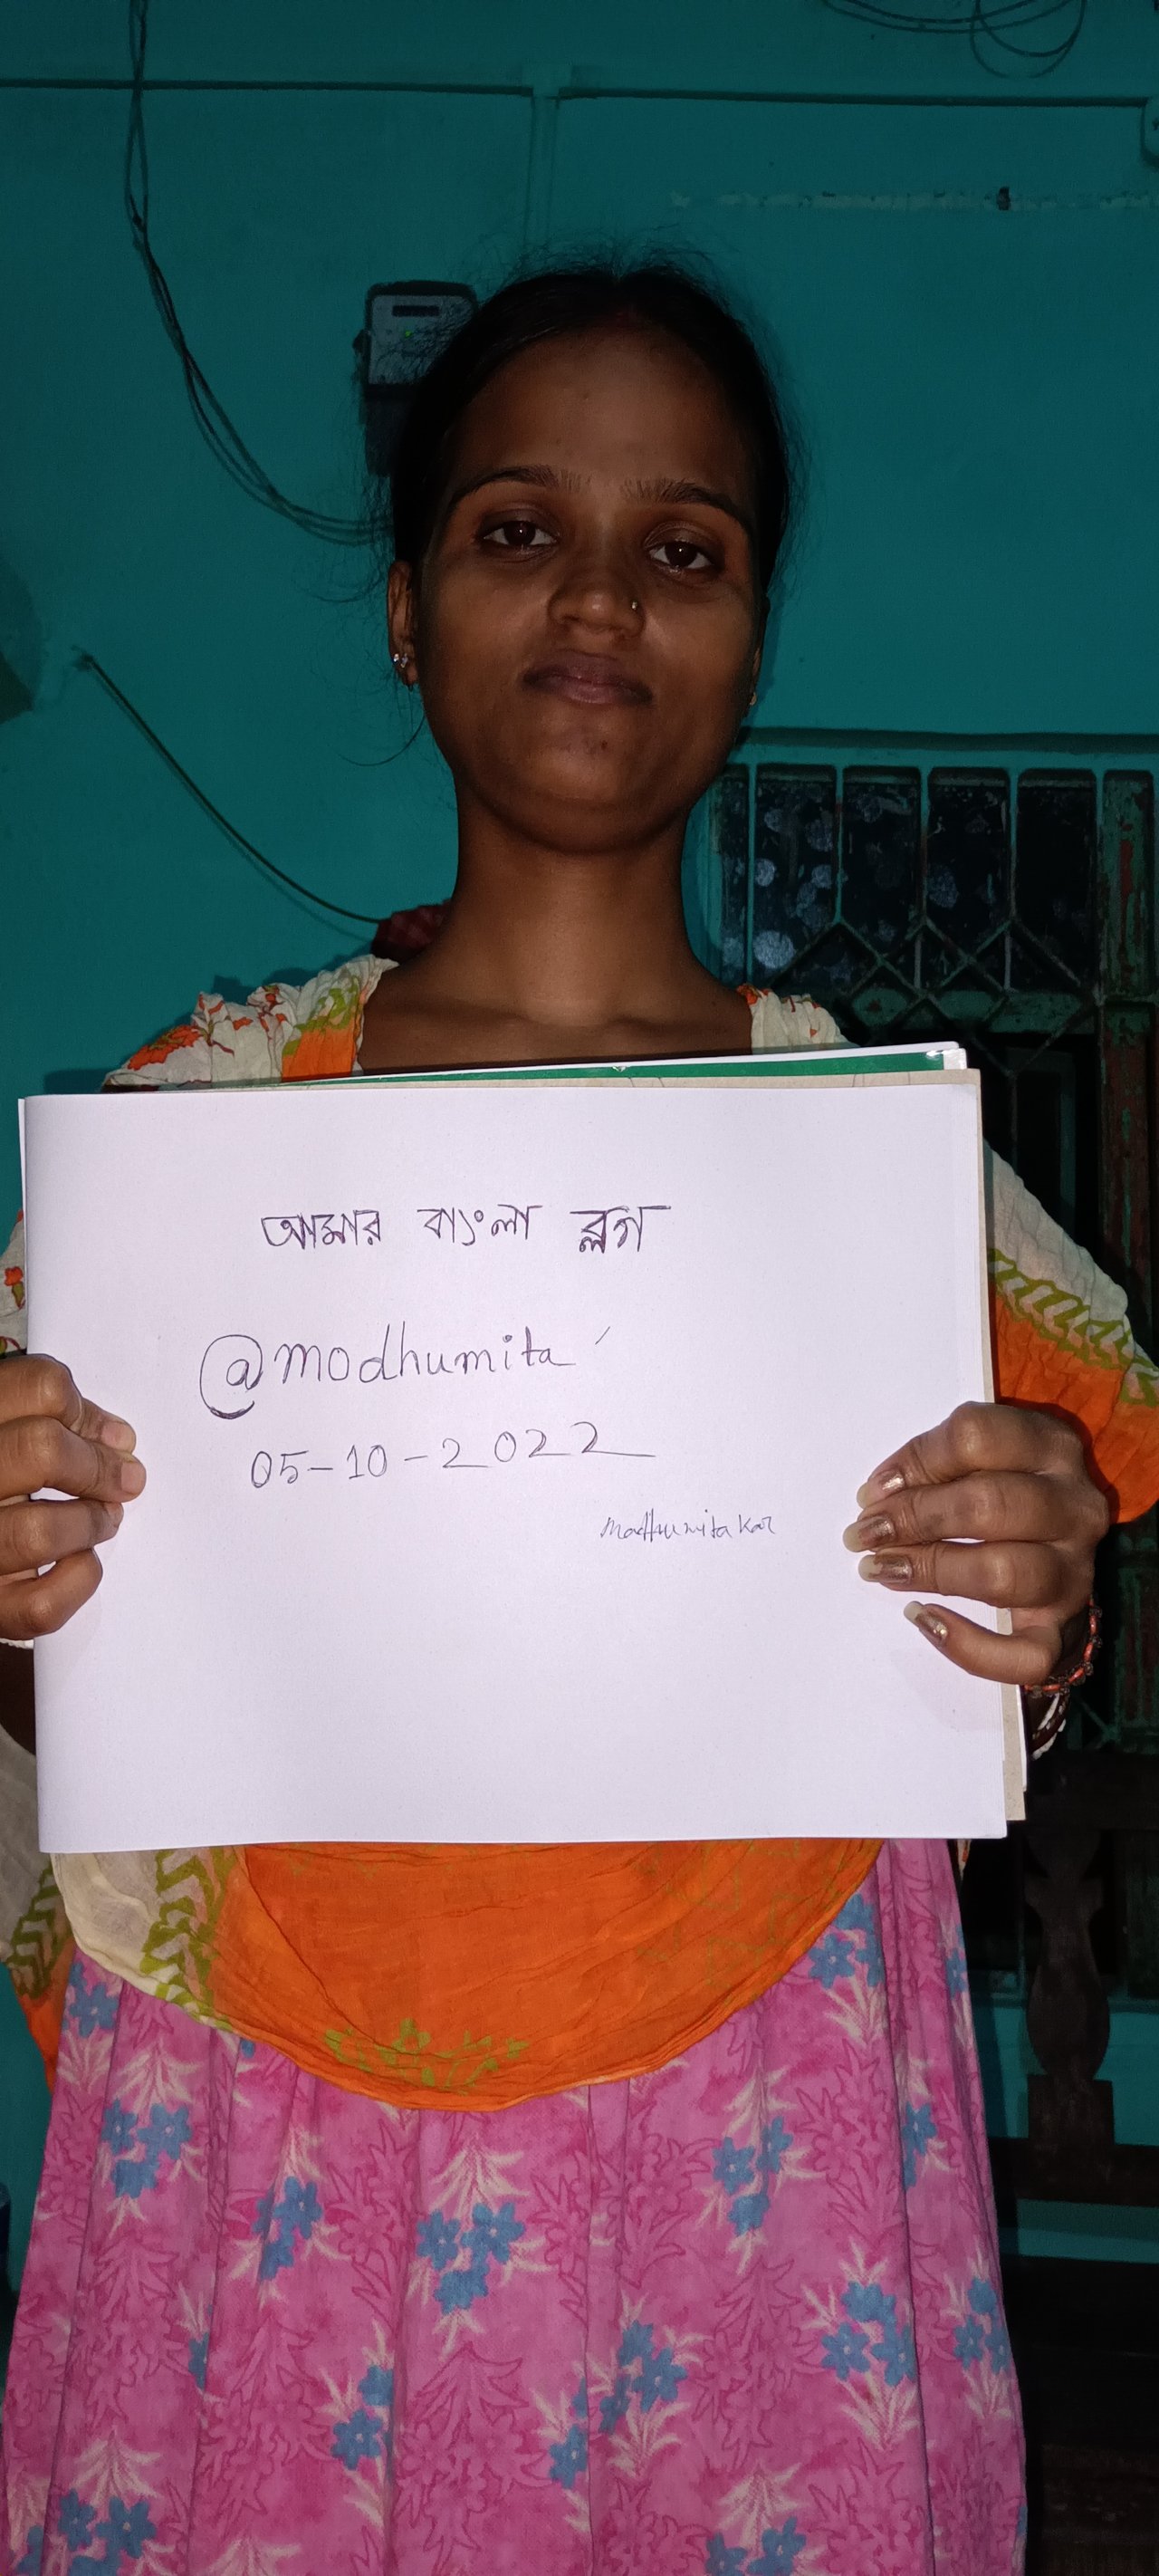 আমার বাংলা ব্লগ
@modhumita
05-10-2022
Madhumita Kar